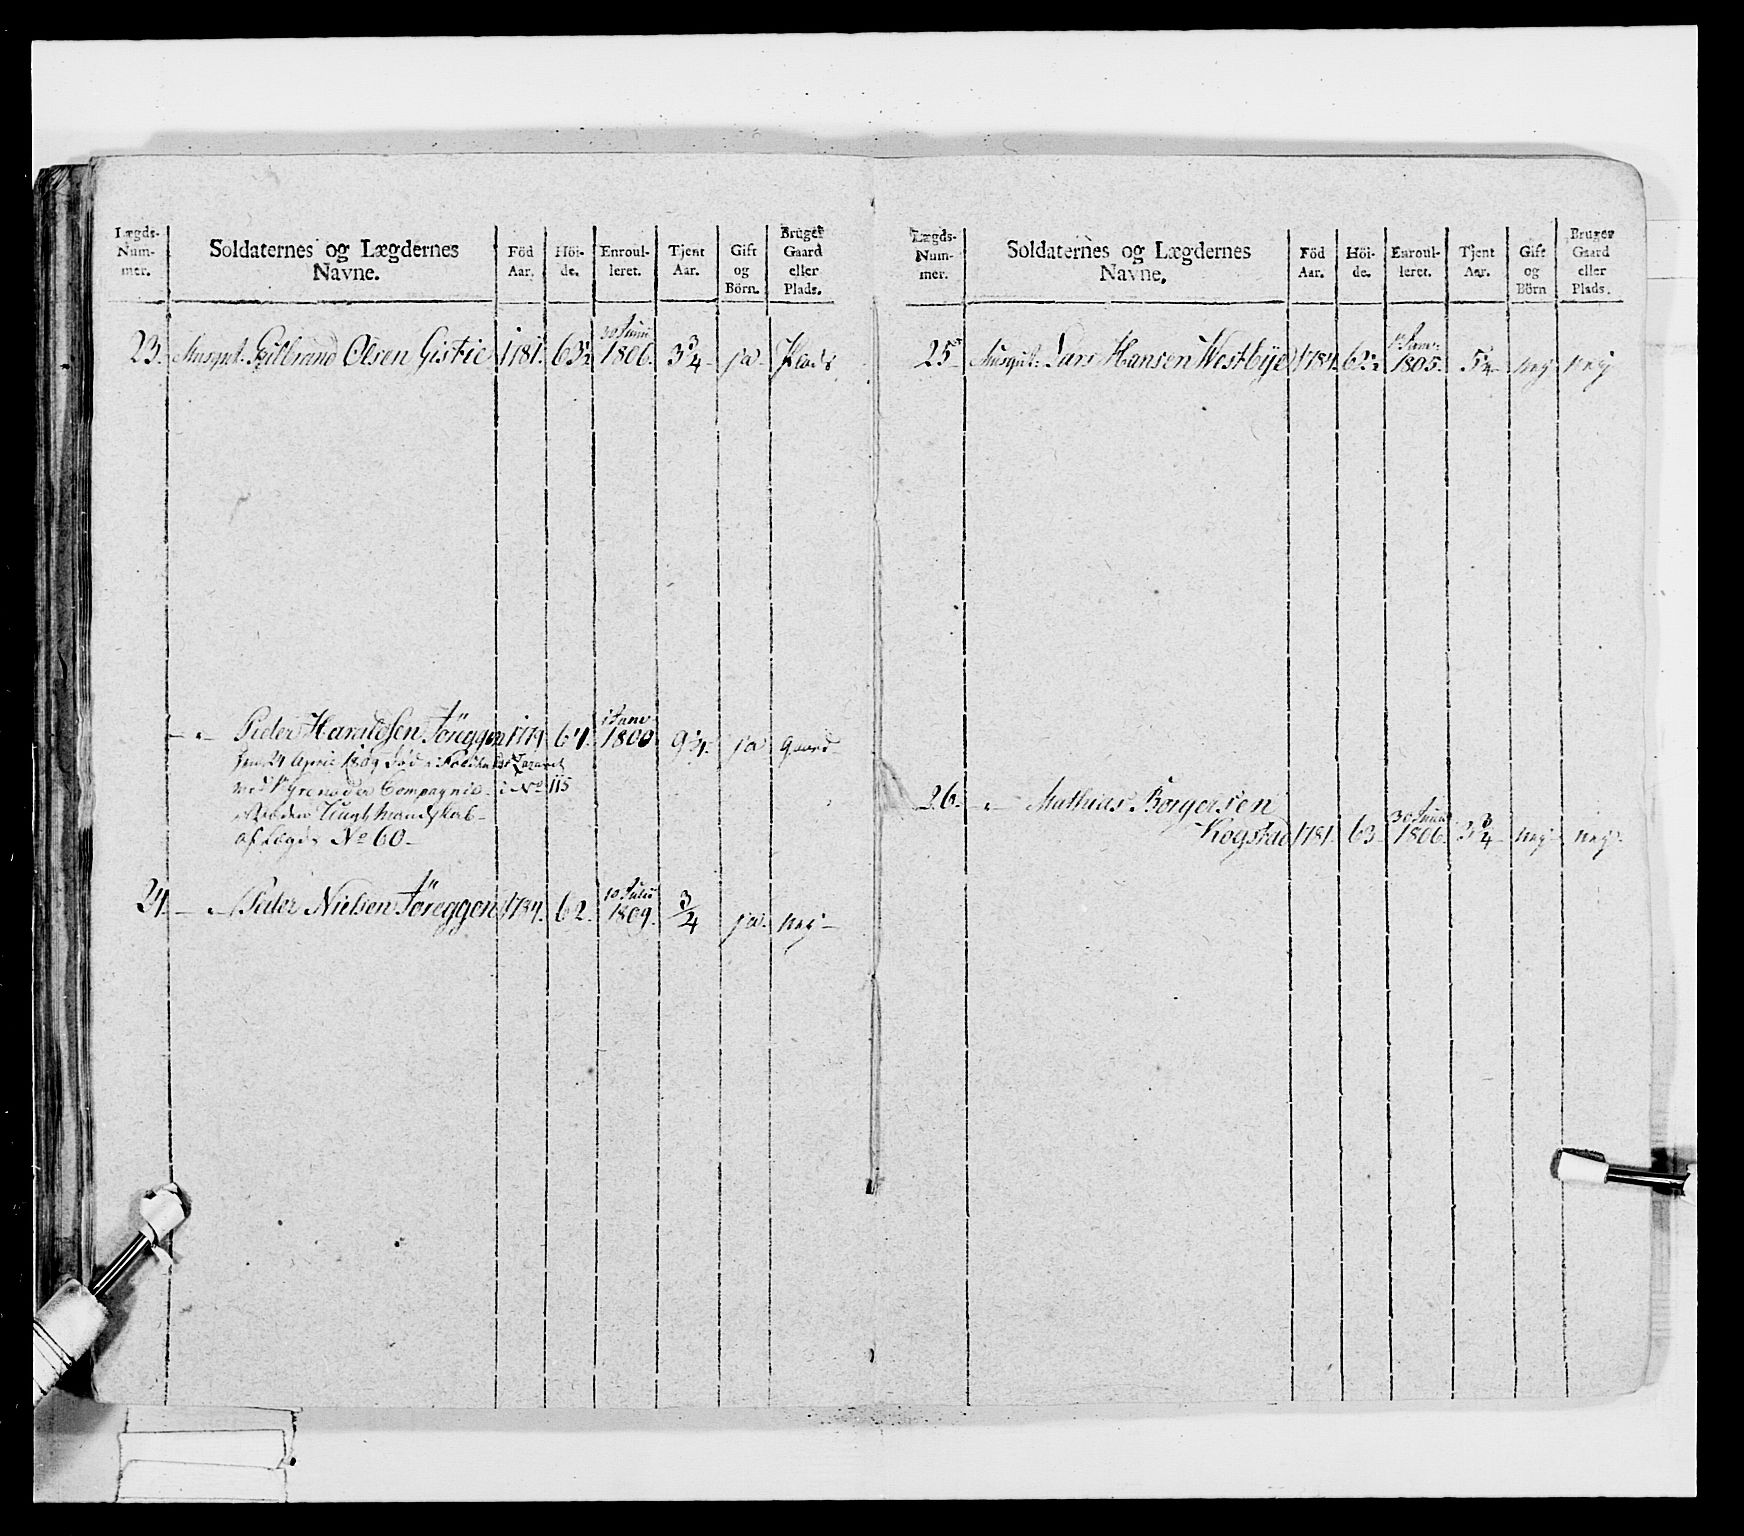 Lægds-
Num-
mer.
Soldaternes og Lægdernes
Navne.
Föd
Aar.
Höi-
de.
Enroul-
leret.
Tjent
Aar.
Gift
og
Börn.
Bruger
Gaard
eller
Plads.
23. Musqut. Gulbrand Olsen Gistie 1781. 63½ 30 Junii 1806. 3¾ ja. Plads
Peder Haraldsen Jöreggen 1779 64. 1 Janv 1800 9¼. ja Gaard
den 24 April 1809 död i Feldt Lazaret
ved Grenader Compagnie i No 115
af Lægd No 60
24. Peder Nielsen Jöreggen 1784. 62. 10 Julii 1809. ¾ ja. nej
Lægds-
Num-
mer.
Soldaternes og Lægdernes
Navne.
Föd
Aar.
Höi-
de.
Enroul-
leret.
Tjent
Aar.
Gift
og
Börn
Bruger
Gaard
eller
Plads.
25 Musqut. Lars Hansen Westbye 1784. 62½ 1 Janv. 1805. 5¼ nej nej
26. Mathias Borgersen
Kogstad 1781. 63 30 Junii 1806. 3¾ nej nej